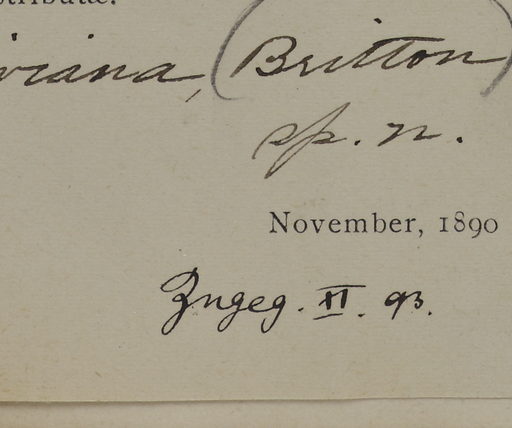 tributæ.
iviana, (Britton)
sp. n.
November, 1890
Zngeg. XI. 93.